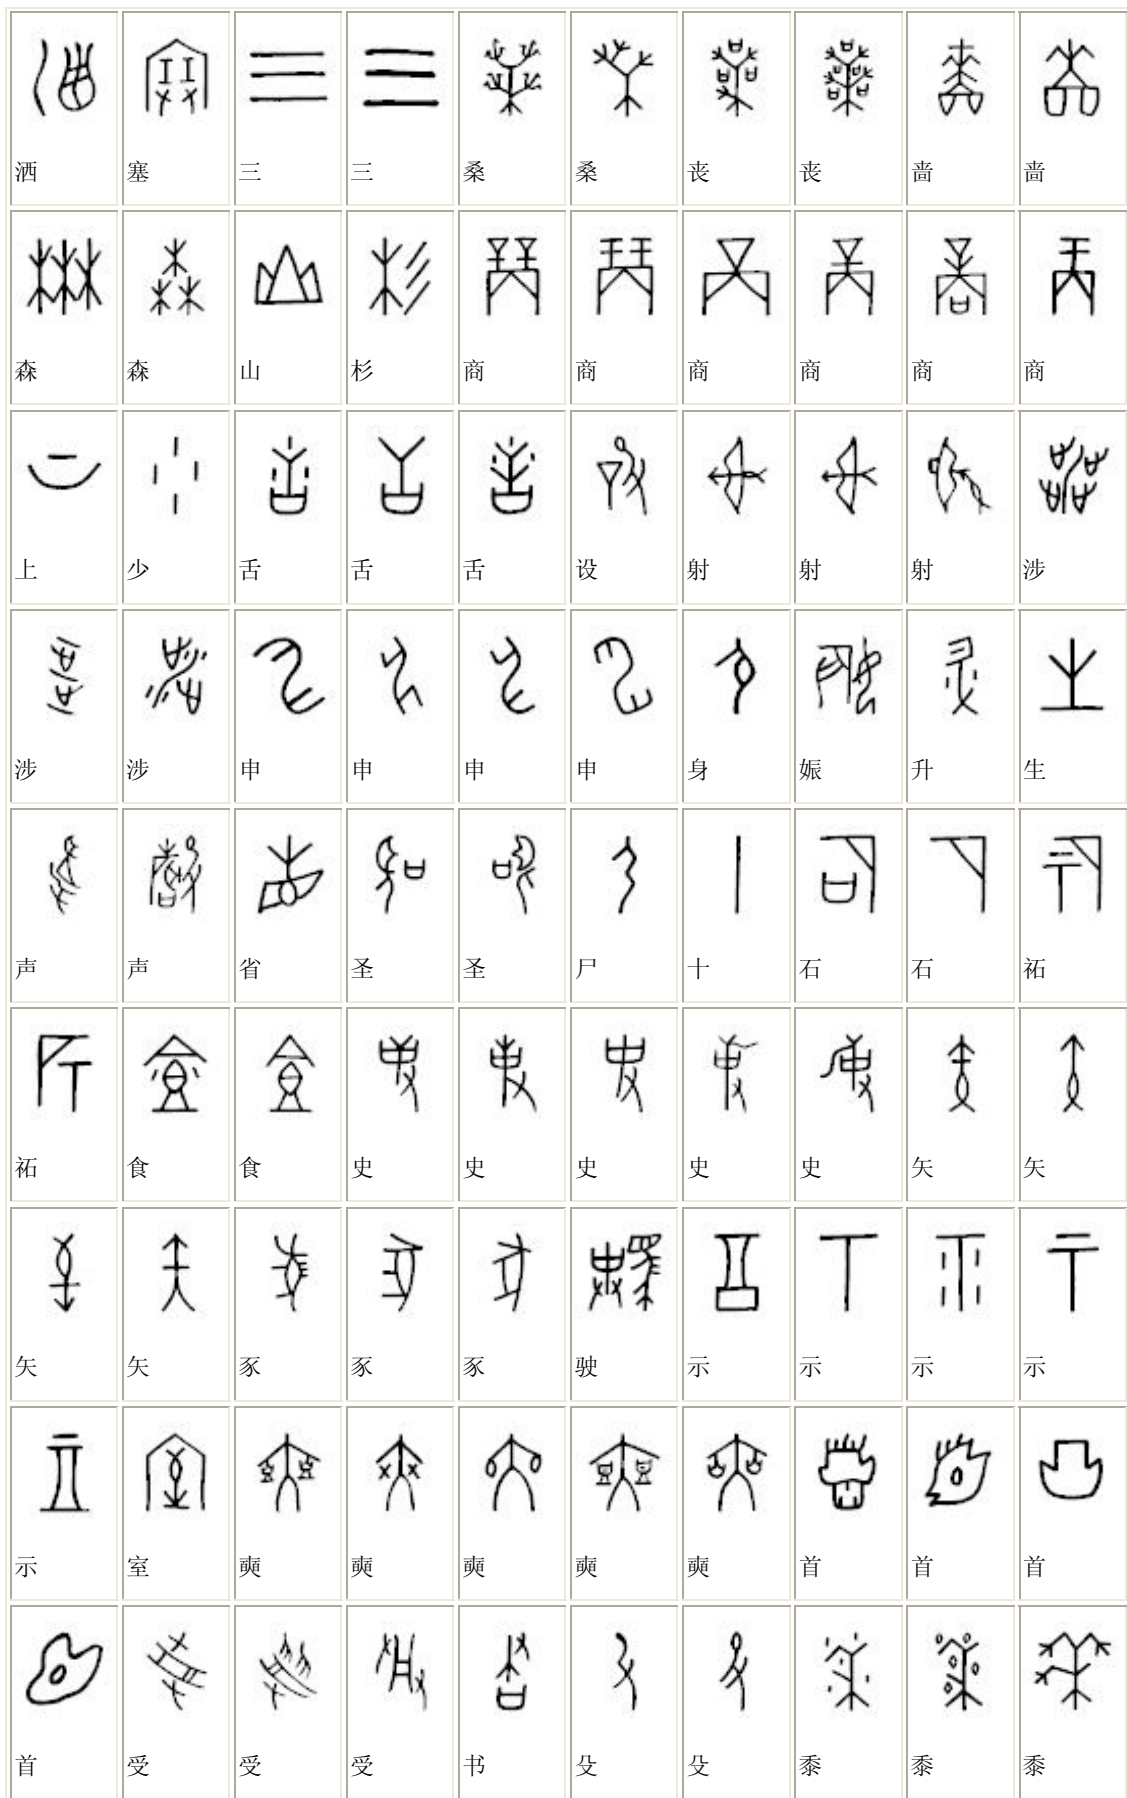 洒 塞 三 三 桑 桑 丧 丧 啬 啬
森 森 山 杉 商 商 商 商 商 商
上 少 舌 舌 舌 设 射 射 射 涉
涉 涉 申 申 申 申 身 娠 升 生
声 声 省 圣 圣 尸 十 石 石 祏
祏 食 食 史 史 史 史 史 矢 矢
矢 矢 豕 豕 豕 驶 示 示 示 示
示 室 奭 奭 奭 奭 奭 首 首 首
首 受 受 受 书 殳 殳 黍 黍 黍